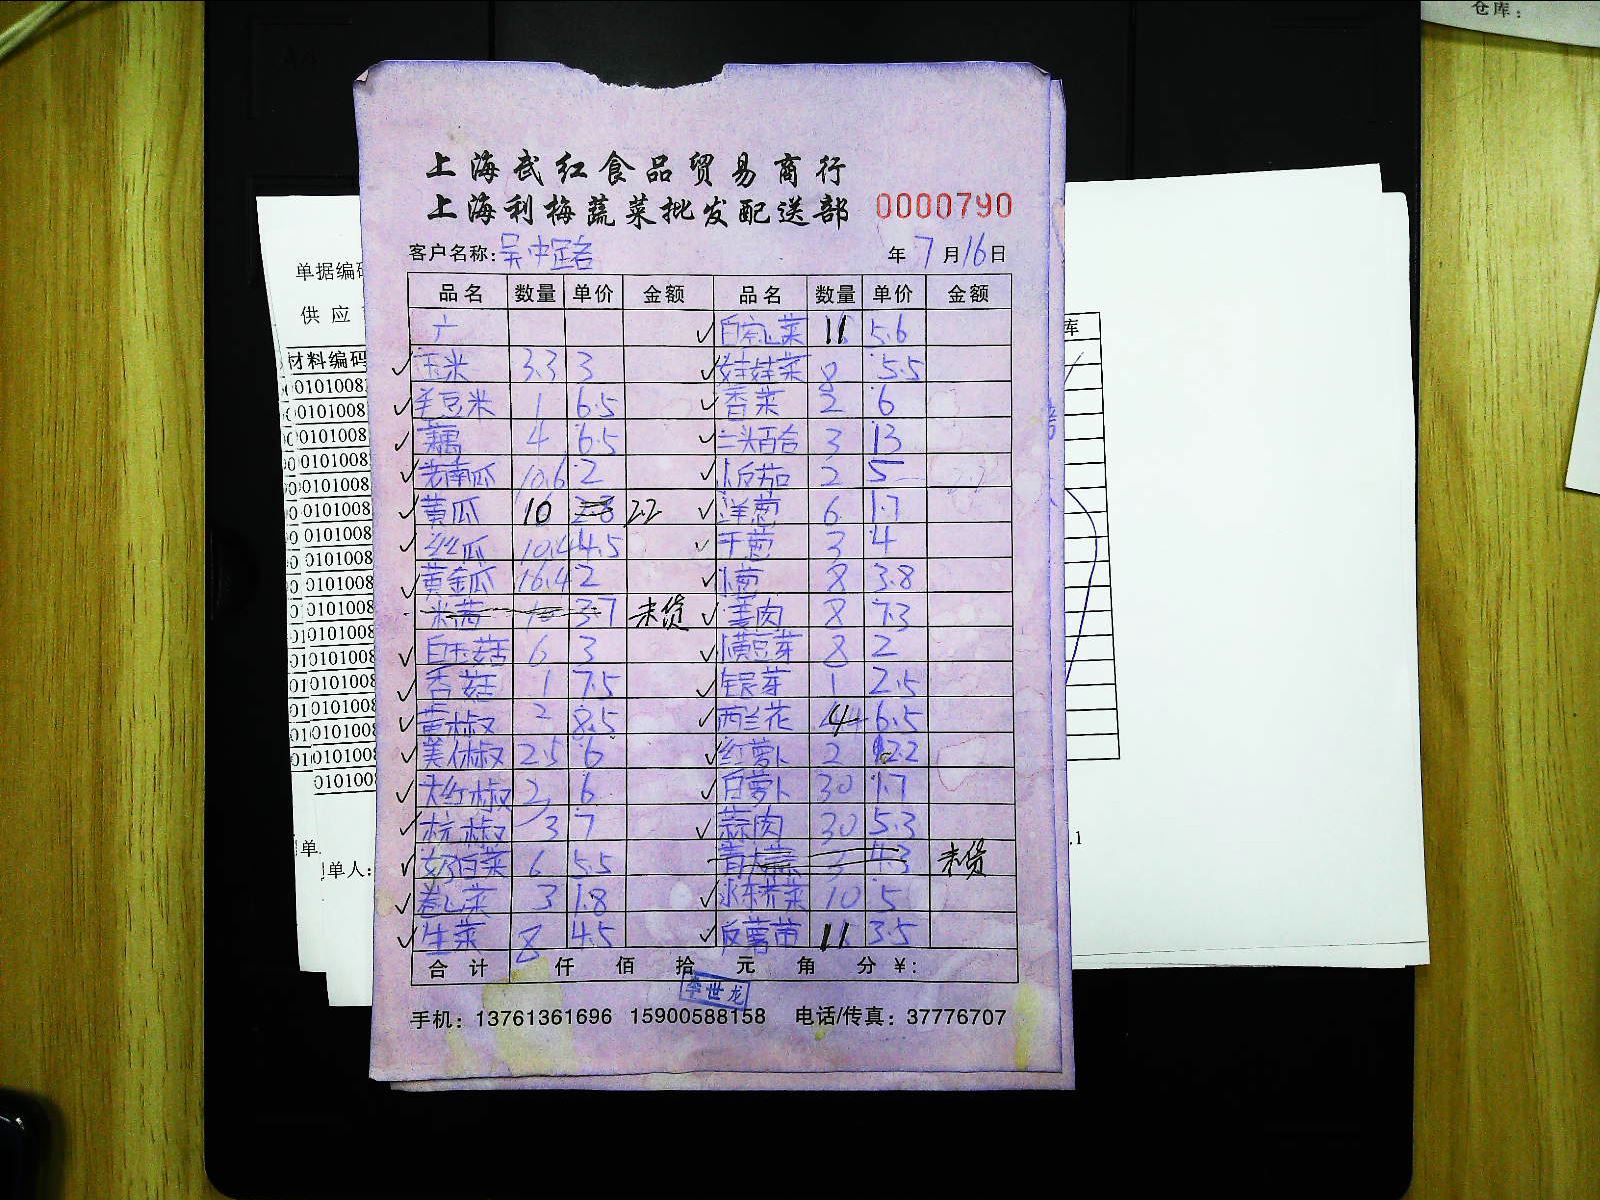 仓库：
上海武红食品贸易商行
上海利梅蔬菜批发配送部 0000790
客户名称: 吴中路 年 7 月 16 日
品名 数量 单价 金额 品名 数量 单价 金额
11 5.6
玉米 3.3 3 娃娃菜 8 5.5
毛豆米 1 6.5 香菜 2 6
藕 4 6.5 百合 3 13
老南瓜 10.6 2 番茄 2 5
黄瓜 10 2.8 2.2 洋葱 6 1.7
丝瓜 10.4 4.5 干葱 3 4
黄金瓜 16.4 2 小葱 8 3.8
米苋 3.7 未货 姜肉 8 7.3
白玉菇 6 3 黄豆芽 8 2
香菇 1 7.5 银芽 1 2.5
黄椒 2 8.5 西兰花 4 6.5
美人椒 2.5 6 红萝卜 2 2.2
大红椒 2 6 白萝卜 30 1.7
杭椒 3 7 蒜肉 30 5.3
奶白菜 6 5.5 青大蒜 3 4.3 未货
卷心菜 3 1.8 荠菜 10 5
生菜 8 4.5 11 3.5
合计 仟 佰 拾 元 角 分 ¥:
李世龙
手机: 13761361696 15900588158 电话/传真: 37776707
单据编码
供应
材料编码
库
单人: